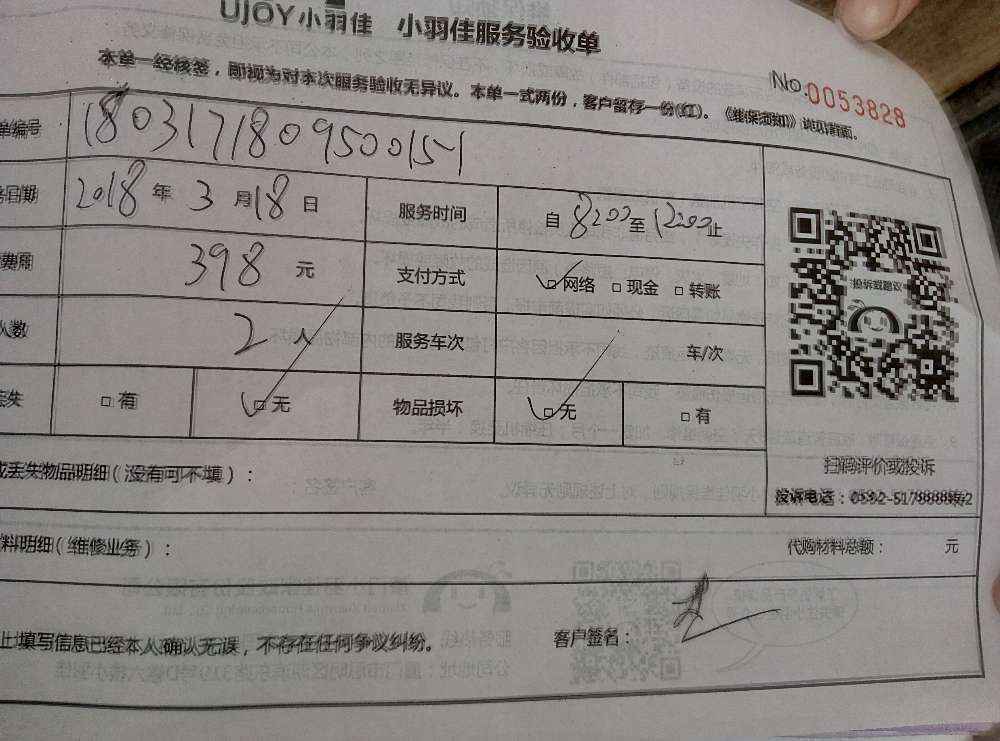 UJOY小羽佳 小羽佳服务验收单
本单一经核签，即视为对本次服务验收无异议。本单一式两份，客户留存一份(红)。《维保须知》详见背面。
No.0053828
单编号 180317180950015-1
务日期 2018年3月18日 服务时间 自 8:00 至 12:00 止
费用 398 元 支付方式 □网络 □现金 □转账
人数 2人 服务车次 车/次
丢失 □有 □无 物品损坏 □无 □有
投诉或建议
扫码评价或投诉
投诉电话：0592-5178888转2
或丢失物品明细(没有可不填)：
料明细(维修业务)： 代购材料总额： 元
上填写信息已经本人确认无误，不存在任何争议纠纷。 客户签名：